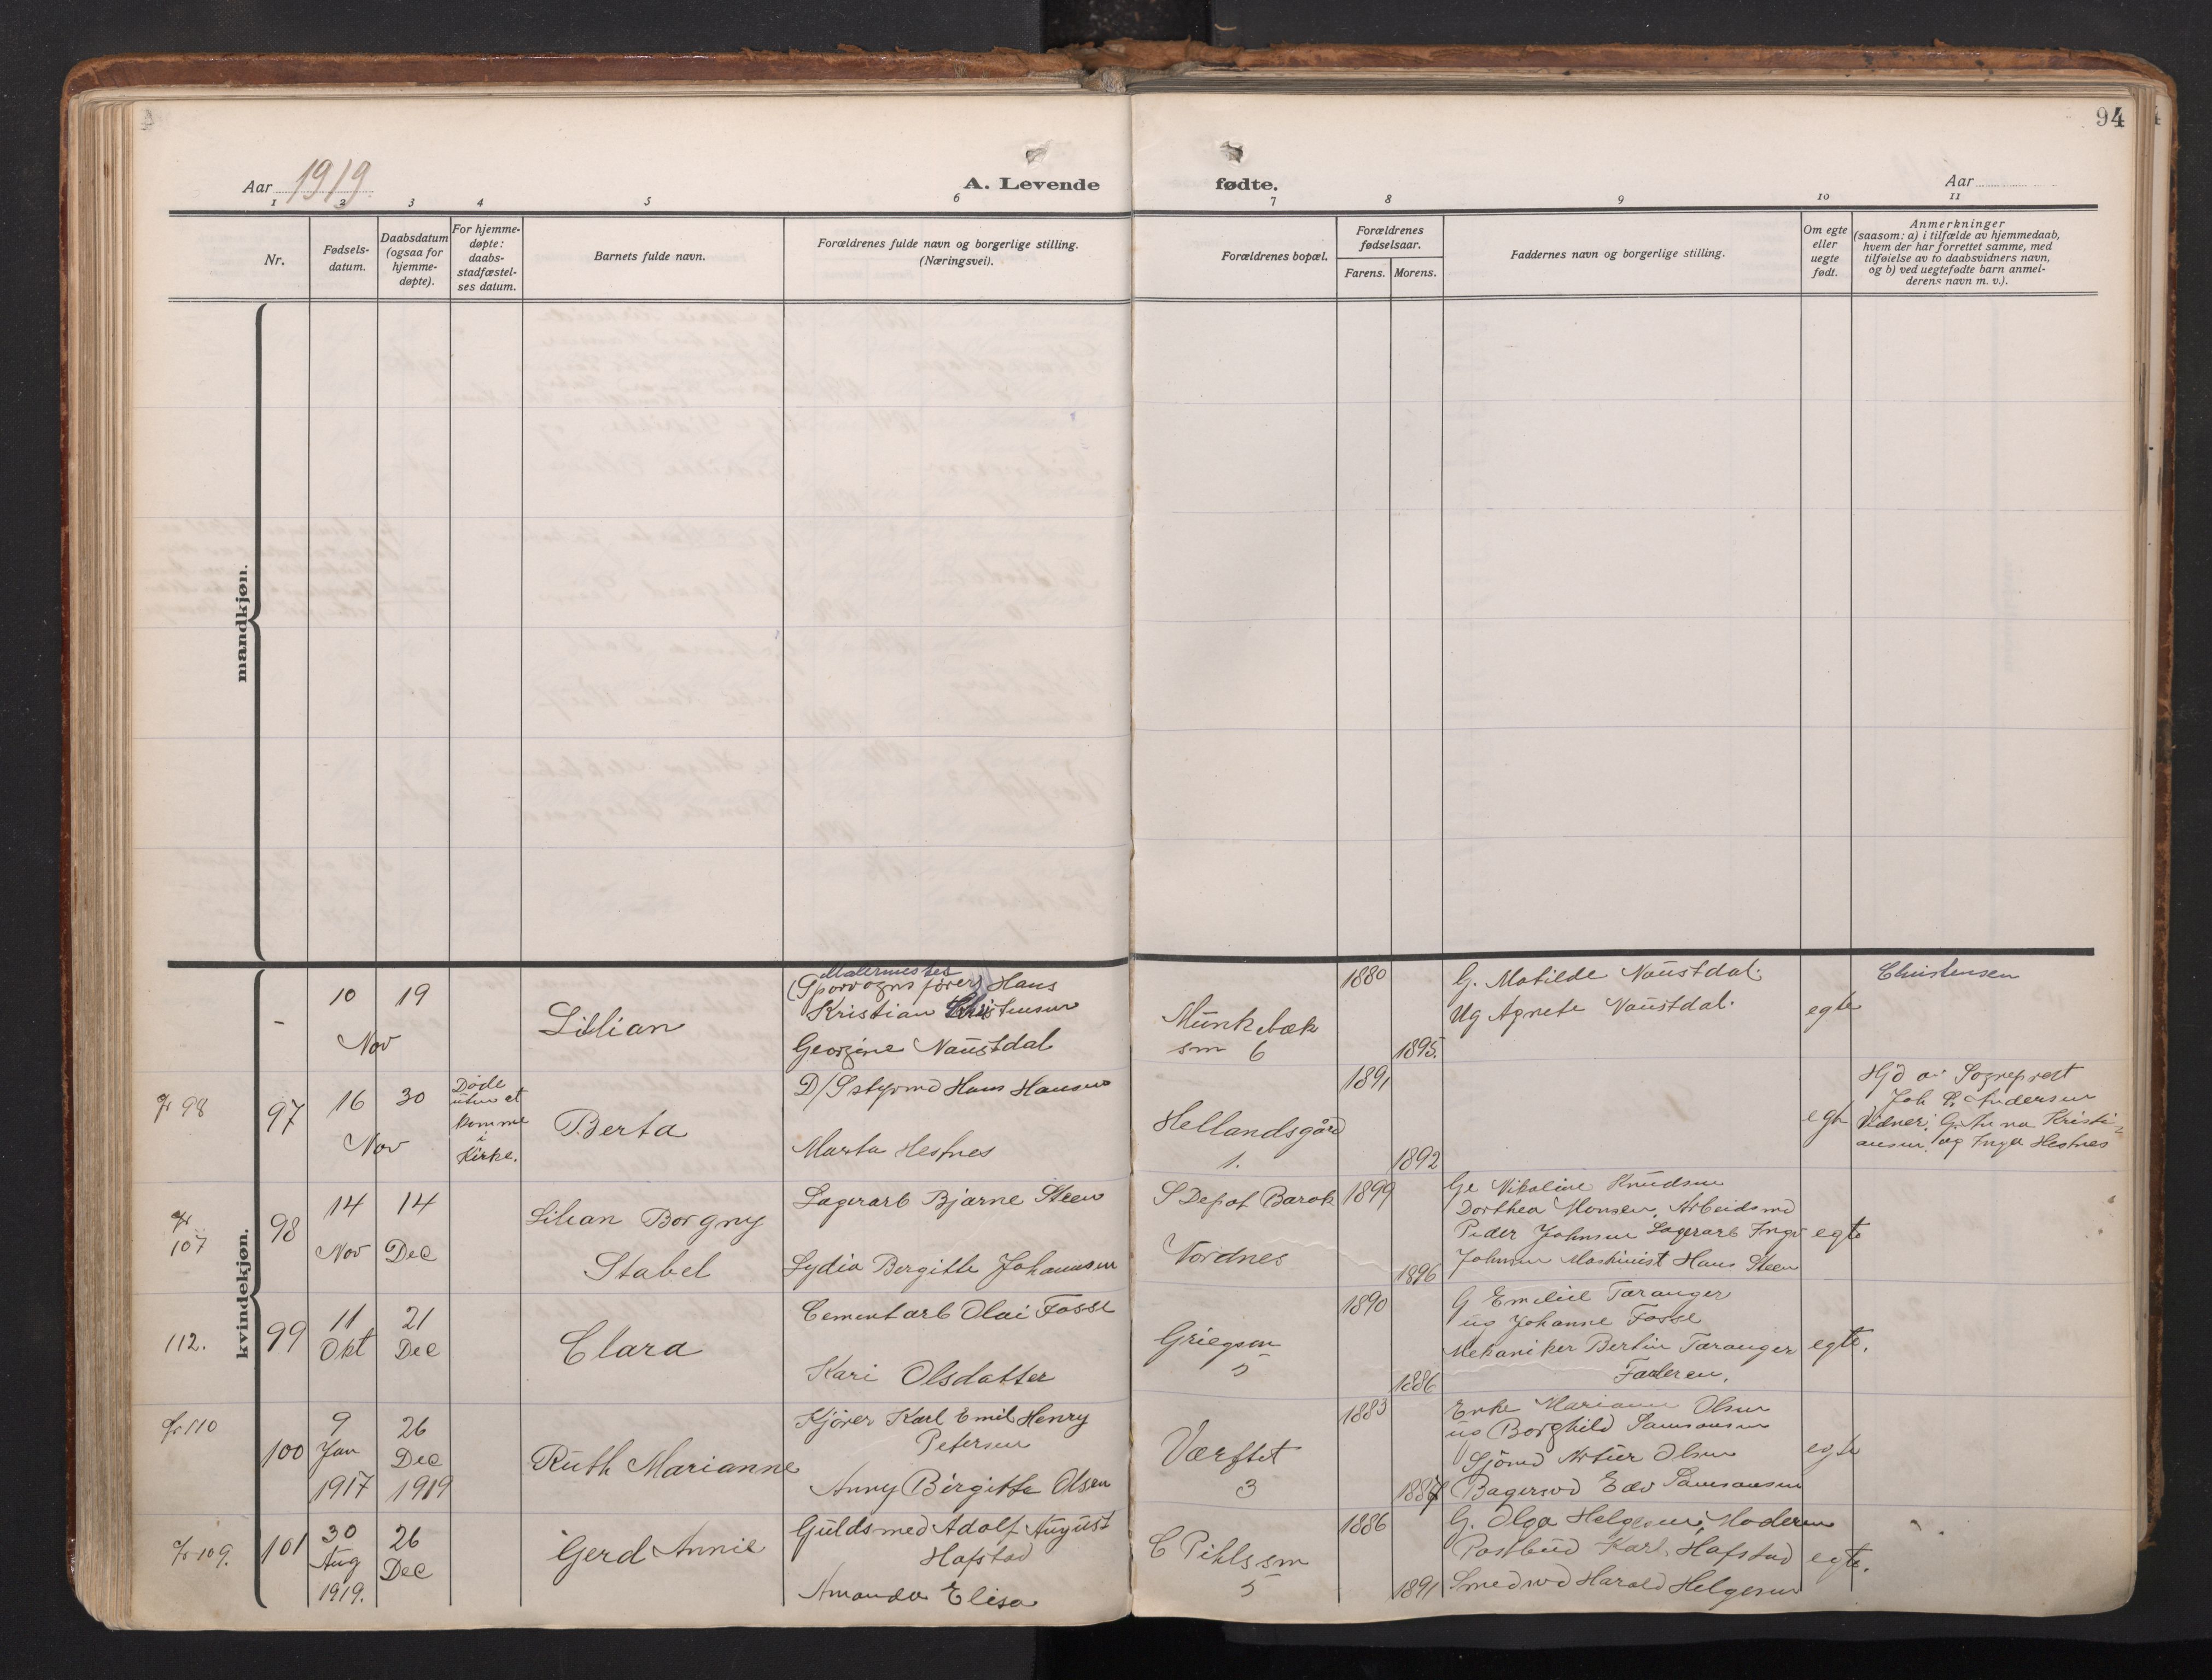 94
Aar 1919
A. Levende fødte.
Aar
1 2 3 4 5 6 7 8 9 10 11
Nr.
Fødsels-
datum.
Daabsdatum
(ogsaa for
hjemme-
døpte).
For hjemme-
døpte:
daabs-
stadfæstel-
ses datum.
Barnets fulde navn.
Forældrenes fulde navn og borgerlige stilling.
(Næringsvei).
Forældrenes bopæl.
Forældrenes
fødselsaar.
Farens. Morens.
Faddernes navn og borgerlige stilling.
Om egte
eller
uegte
født.
Anmerkninger
(saasom: a) i tilfælde av hjemmedaab,
hvem der har forrettet samme, med
tilføielse av to daabsvidners navn,
og b) ved uegtefødte barn anmel-
derens navn m. v.).
mandkjøn.
kvindekjøn.
-
10 19
Nov
Lillian
Malermester
(Sporvogns fører) Hans
Kristian Christensen
Georgine Naustdal
Munkebæk
sm 6
1880
1895.
G. Matilde Naustdal.
Ug Agnete Naustdal.
egte
Christensen
98
97
16 30
Nov
Døde
uten at
komme
i
Kirke.
Berta
D/S styrmd Hans Hansen
Marta Hesnes
Hellandsgård
1.
1891
1892
egte
Hjd av Sogneprest
Joh Andersen
Vidner: G. Kristi-
ansen og Inga Hestnes
107
98
14 14
Nov Dec
Lilian Borgny
Stabel
Lagerarb Bjarne Steen
Lydia Bergitte Johannsen
S Depot Barak
Nordnes
1899
1896
Ge Vikoline Knudsen
Dorthea Monsen, Arbeidsmd
Peder Johnsen Lagerarb Ingv
Johnsen Maskinist Hans Steen
egte
112.
99
11 21
Okt Dec
Clara
Cementarb Olai Fosse
Kari Olsdatter
Griegsm
5
1890
1886
G Emilie Taranger
ug Johanne Fosse
Mekaniker Bertin Taranger
Faderen.
egte.
110
100
9 26
Jan Dec
1917 1919
Ruth Marianne
Kjører Karl Emil Henry
Petersen
Anny Birgitte Olsen
Værftet
3
1883
Enke Marianne Olsen
ug Borghild Samsonsen
Sjømd Artur Olsen
Bagersvd Edv Samsonsen
egte
109.
101
30 26
Aug Dec
1919.
Gerd Annie
Guldsmed Adolf August
Hafstad
Amanda Elisa
C Pihls sm
5
1886
1891
G. Olga Helgesen, Moderen
Postbud Karl Hafstad
Smedsvd Harald Helgesen
egte.